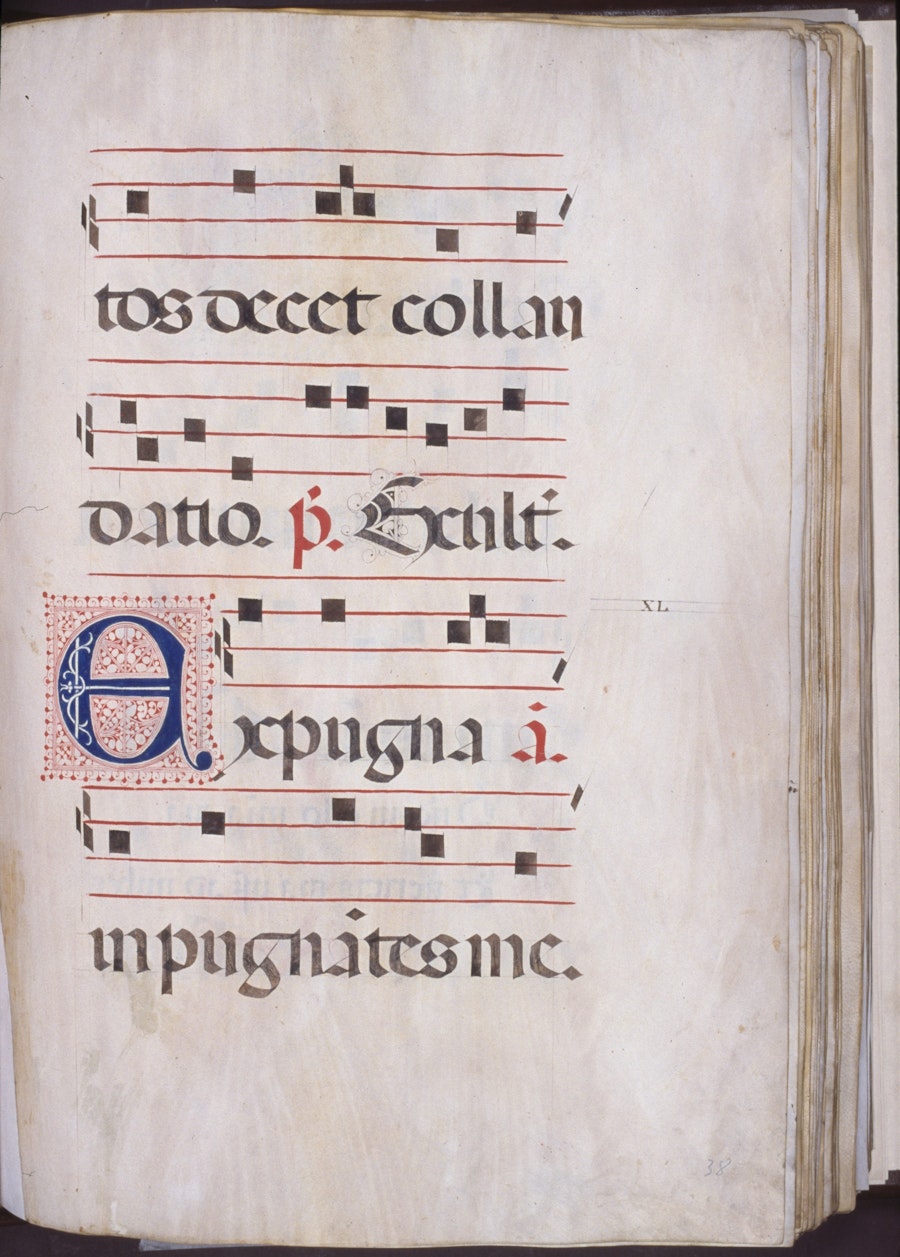 tos decet collau
datio. p̄. Exult̄.
XL
Expugna ā.
inpugnātes me.
38